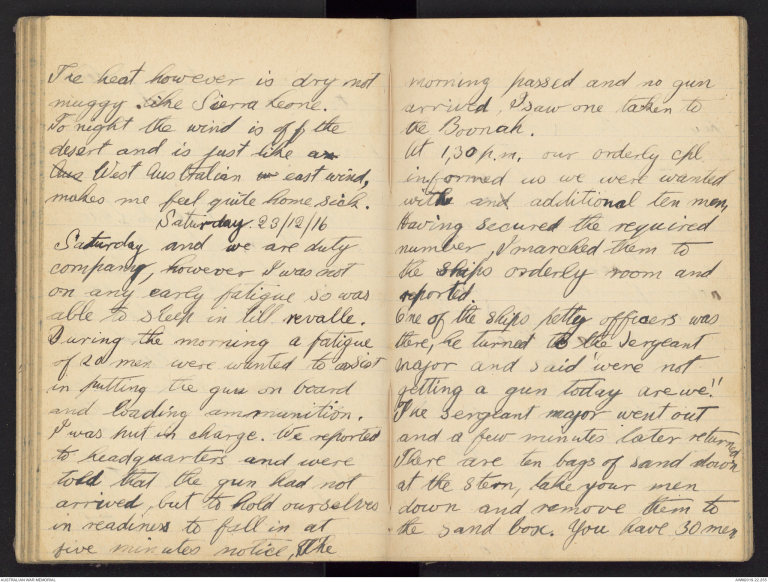 The heat however is dry not
muggy like Sierra Leone.
To night the wind is off the
desert and is just like an
Aus West Australian in east wind,
makes me feel quite home sick.
Saturday. 23/12/16
Saturday and we are duty
company, however I was not
on any early fatigue so was
able to sleep in till revalle.
During the morning a fatigue
of 20 men were wanted to assist
in putting the gun on board
and loading ammunition.
I was put in charge. We reported
to headquarters and were
told that the gun had not
arrived, but to hold ourselves
in readiness to fall in at
five minutes notice, The
morning passed and no gun
arrived, I saw one taken to
the Boonah.
At 1,30 p.m. our orderly cpl
informed us we were wanted
with and additional ten men,
Having secured the required
number, I marched them to
the ships orderly room and
reported.
One of the ships petty officers was
there, he turned to the sergeant
major and said "were not
getting a gun today are we".
The sergeant major went out
and a few minutes later returned
There are ten bags of sand down
at the stern, take your men
down and remove them to
the sand box. You have 30 men
AUSTRALIAN WAR MEMORIAL